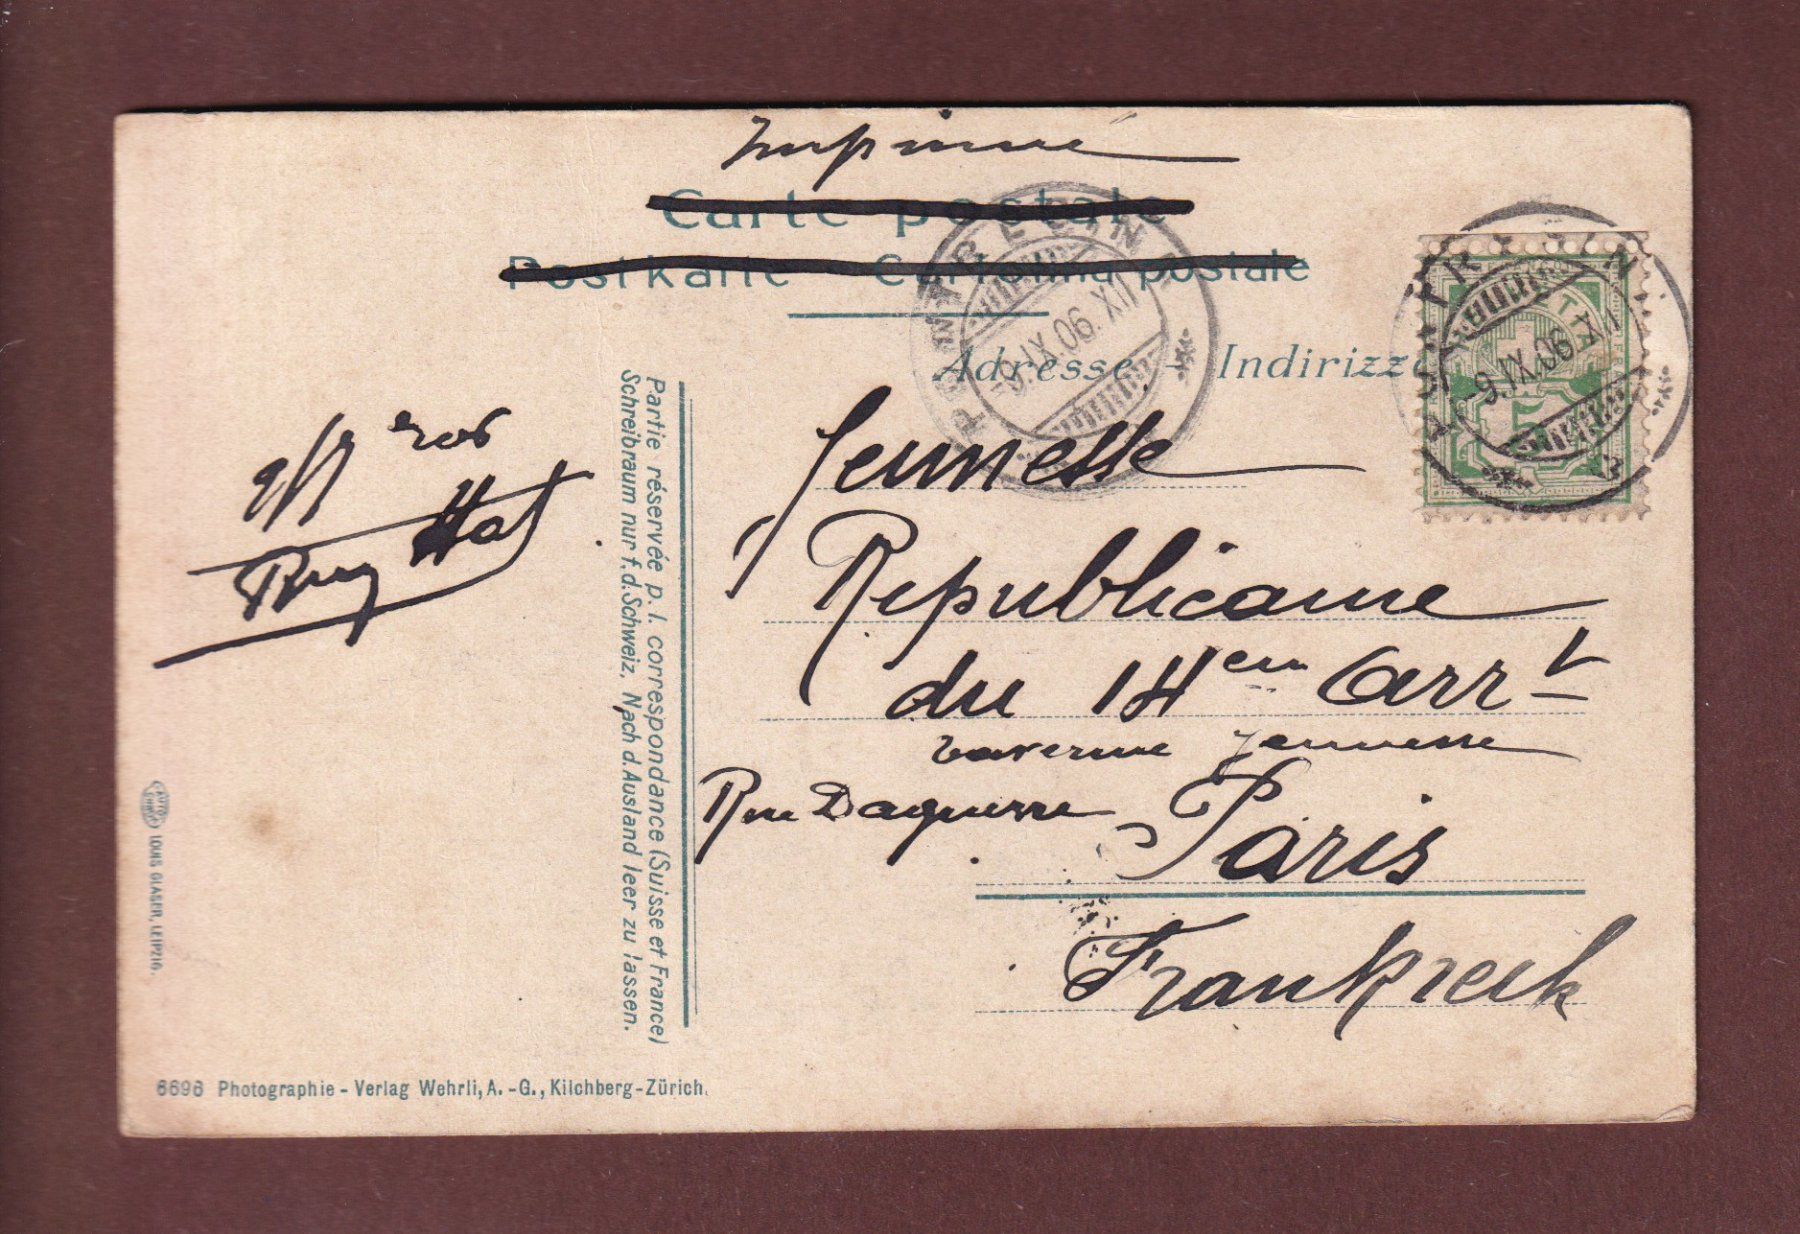 Imprimé
Carte postale
Postkarte - Cartolina postale
PONTRESINA
-9.IX.06.XII
Adresse - Indirizzo
PONTRESINA
-9.IX.06.XII
5
Jeunesse
Republicaine
du 14em Arrt
taverne Jeunesse
Rue Daguerre Paris
Frankreich
Partie réservée p. l. correspondance (Suisse et France)
Schreibraum nur f. d. Schweiz. Nach d. Ausland leer zu lassen.
LOUIS GLASER, LEIPZIG.
6696 Photographie - Verlag Wehrli, A.-G., Kilchberg-Zürich.